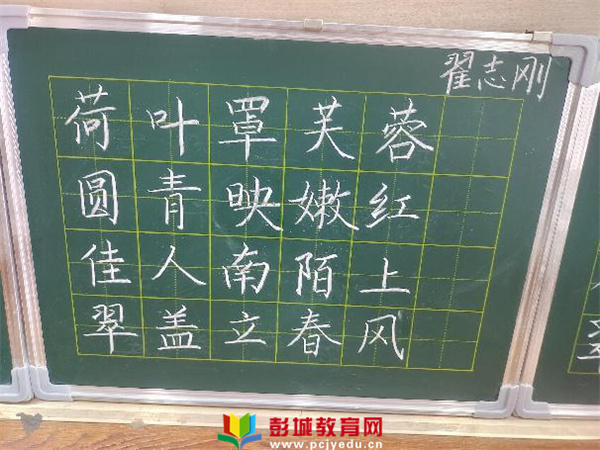 翟志刚
荷叶罩芙蓉
圆青映嫩红
佳人南陌上
翠盖立春风
彭城教育网
www.pcjyedu.cn